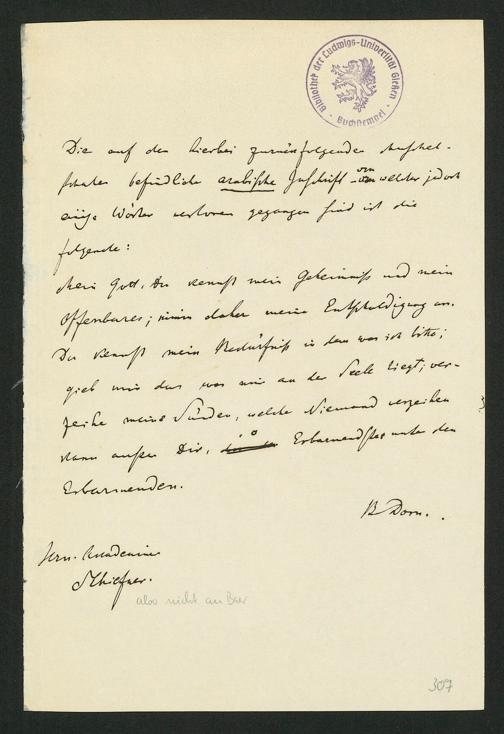 Bibliothek der Ludwigs-Universität Gießen
Buchstempel
Die auf der hierbei zurückfolgenden
befindliche arabische Inschrift von welcher jedoch
einige Wörter verloren gegangen sind ist die
folgende:
Mein Gott, Du kennst mein Geheimniß und mein
Offenbares; nimm daher meine Entschuldigung an.
Du kennst mein Bedürfniß in dem was ich bitte;
gieb mir das was mir an der Seele liegt; ver-
zeihe meine Sünden, welche Niemand verzeihen
kann außer Dir, Erbarmendster unter den
Erbarmenden.
B Dorn.
Hern. Akademiker
Schiefner.
also nicht an Baer
307